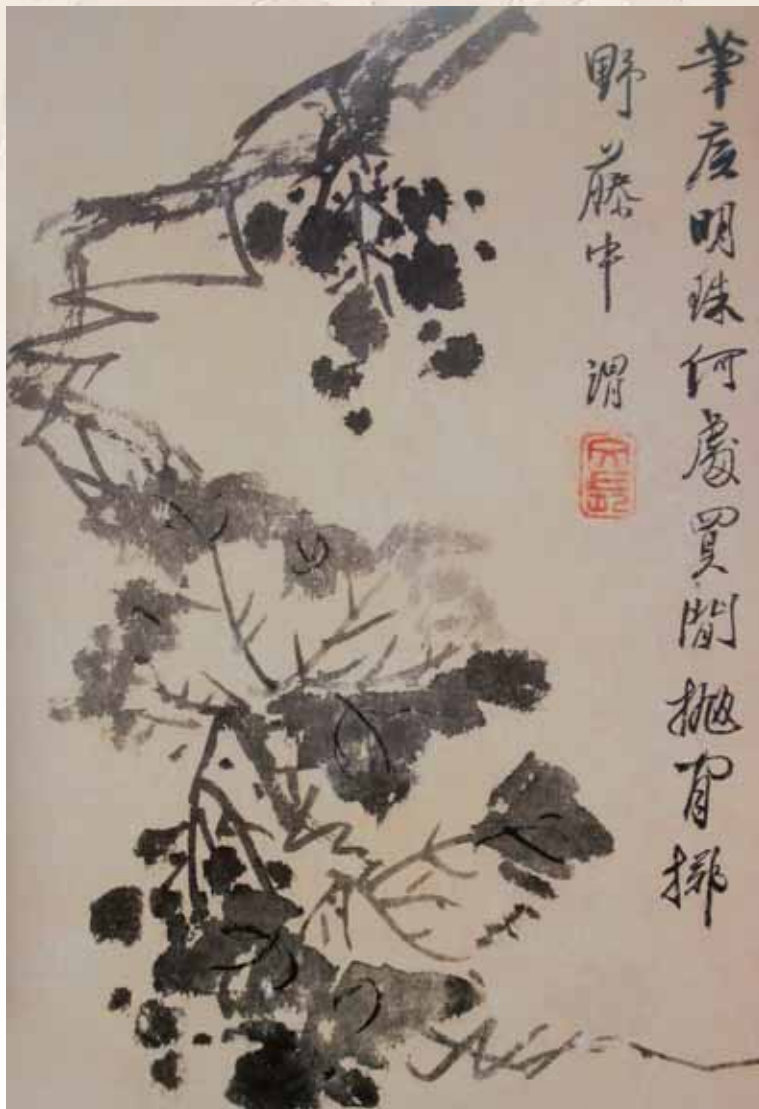 筆底明珠何處買閒拋閒擲
野藤中 渭
文長